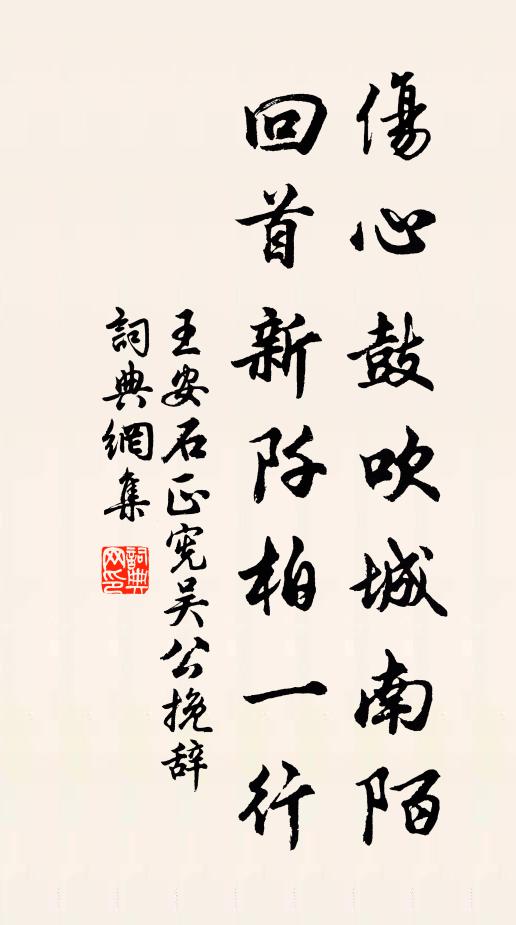 傷心鼓吹城南陌
回首新阡柏一行
王安石正憲吴公挽辞
詞典網集
詞典網印